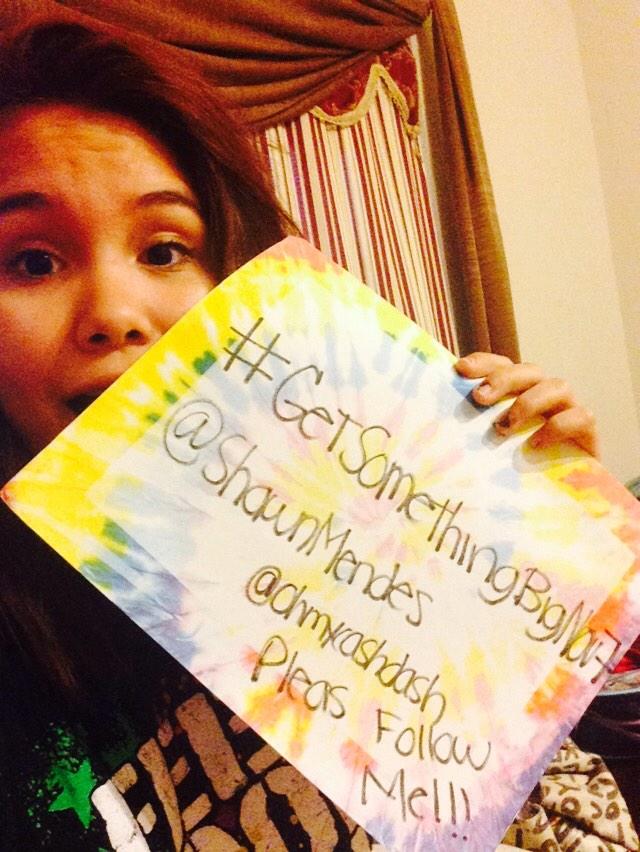 #GetSomethingBigNov7
@ShawnMendes
@ohmycashdash
Pleas Follow
Me!!!